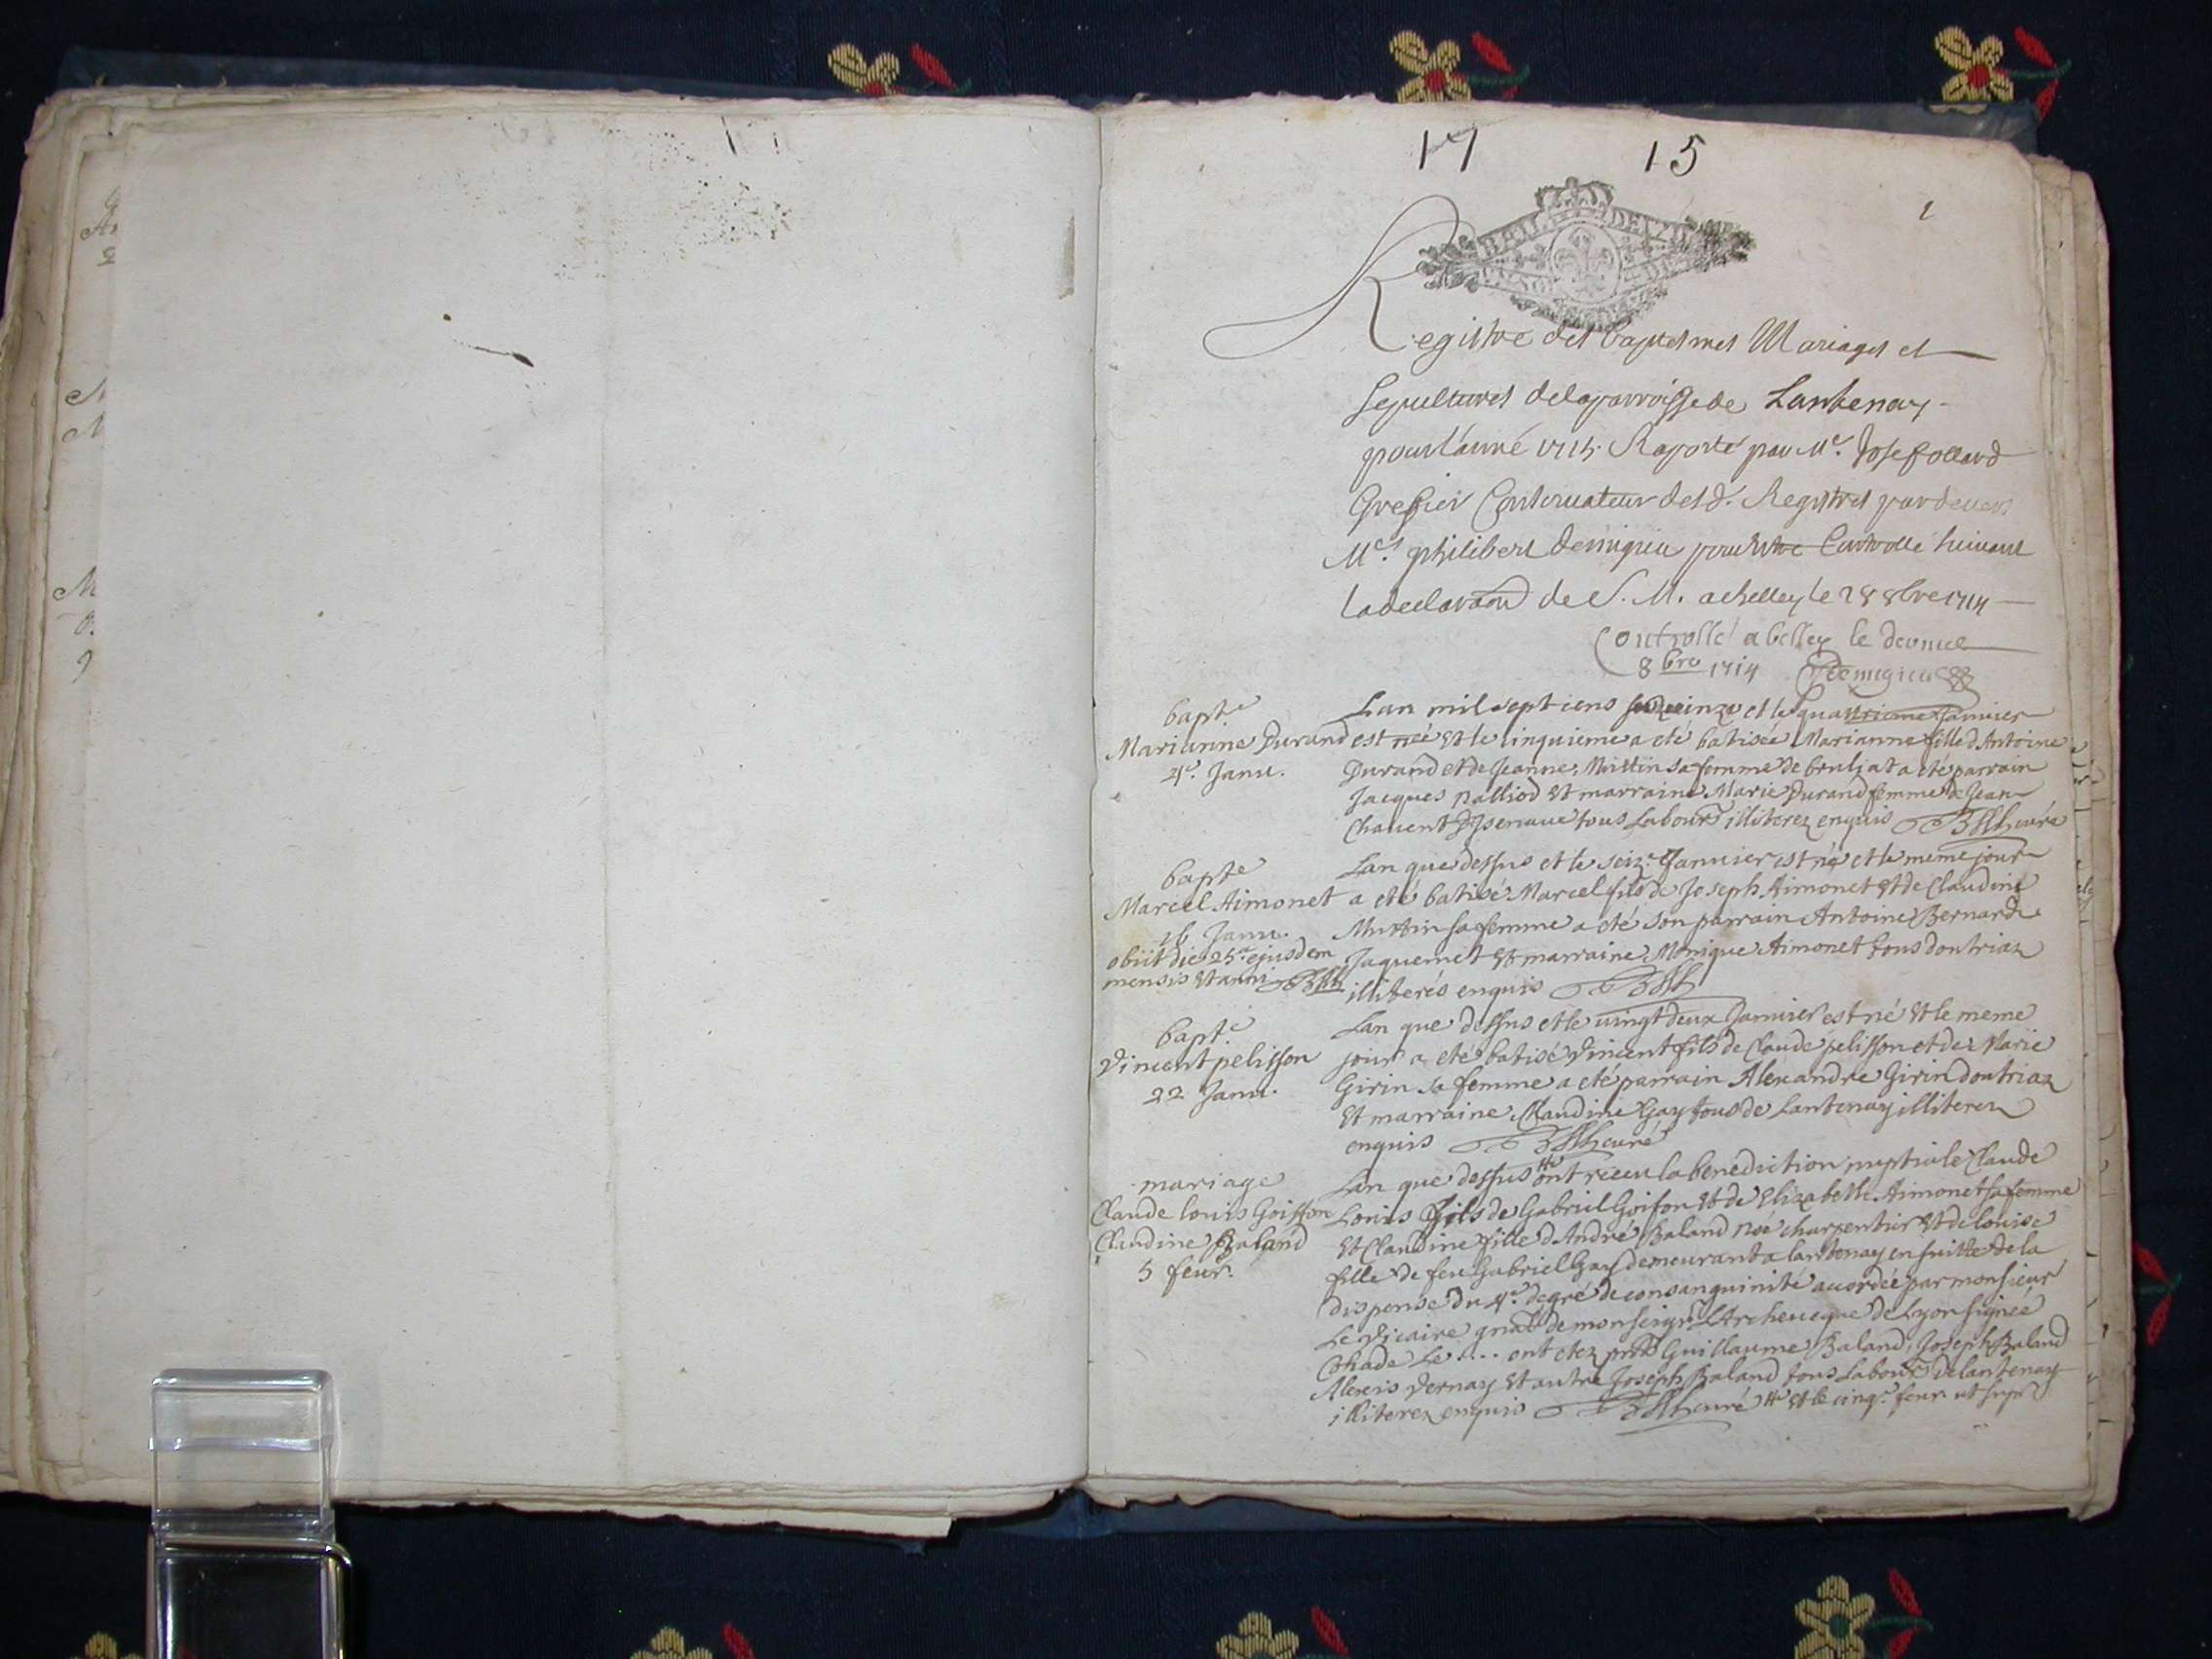 17 15
1
Registre des baptesmes Mariages et
sepultures de la parroisse de Lantenay
pour l'anné 1715. Raporté par Me. Josef ollard
Greffier Conservateur desd. Registres pardevers
Me. philibert demigieu pour estre Controlle suivant
la declaraon de S. M. a belley le 28 8bre 1714
Controllé a belley le dernier
8bre 1714 Demigieu
bapte.
Marianne Durand
4e. Janu.
Lan mil sept cens quinze et le quatrieme Januier
est née et le cinquieme a eté batisée Marianne fille d'Antoine
Durand et de Jeanne Mûttin sa femme de bruliat a eté parrain
Jacques palliod et marraine Marie Durand femme de Jean
Chauent Disenaue tous Labours illiterez enquis curé
bapte
Marcel Aimonet
16 Janu.
obiit die 25e ejusdem
mensis et anni
Lan que dessus et le seize. Januier est né et le meme jour
a eté batisé Marcel fils de Joseph Aimonet et de Claudine
Muttin sa femme a eté son parrain Antoine Bernard
Jaquemet et marraine Monique Aimonet tous doutriaz
illiterés enquis
bapte.
Vincent pelisson
22 Janu.
Lan que dessus et le uingt deux Januier est né et le meme
jour a eté batisé Vincent fils de Claude pelisson et de Marie
Girin sa femme a eté parrain Alexandre Girin doutriaz
et marraine Claudine Gay tous de Lantenay illiterez
enquis curé
mariage
Claude louis Goiffon
Claudine Baland
5 feur.
Lan que dessus ont receu la benediction nuptiale Claude
Louis fils de Gabriel Goifon et de Elizabeth Aimonet sa femme
et Claudine fille d'André Baland noé charpentier et de louise
fille de feu Gabriel Gay demeurant a lantenay en suitte de la
dispense du 4e. degré de consanguinité accordée par monsieur
Le Vicaire gnal de monseigr. L'Archeueque de Lyon signée
Cohade Le .... ont etez pnts Guillaume Baland, Joseph Baland
Alexis Vernay et autre Joseph Baland tous Labours de lantenay
illiterez enquis curé et le cinqe. feur. ut supra